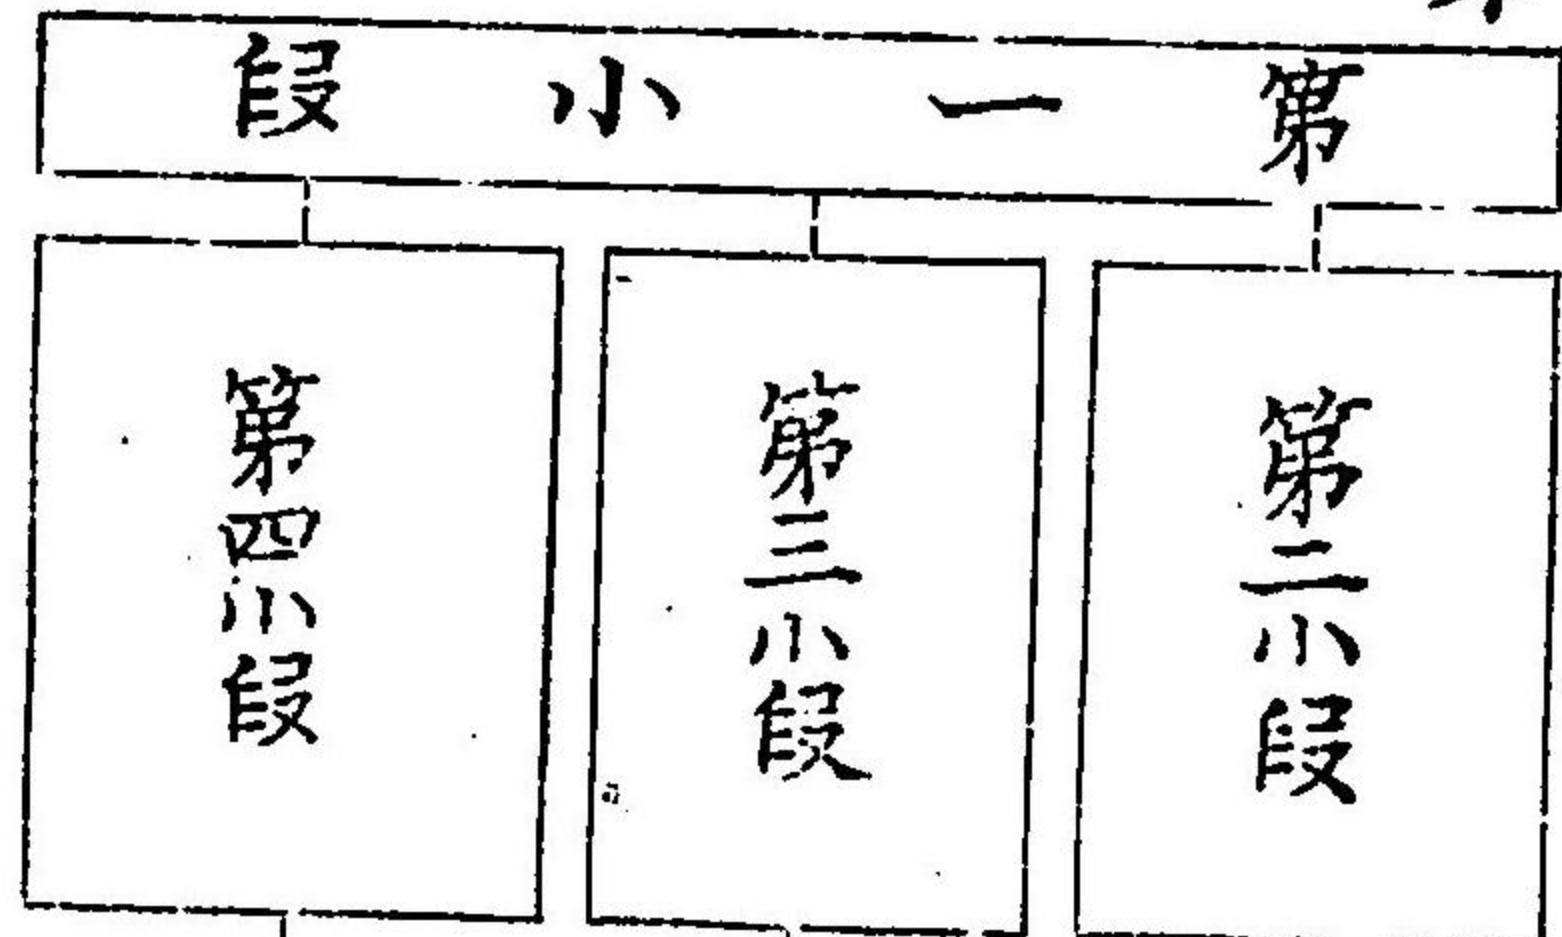 第一小段
第二小段
第三小段
第四小段